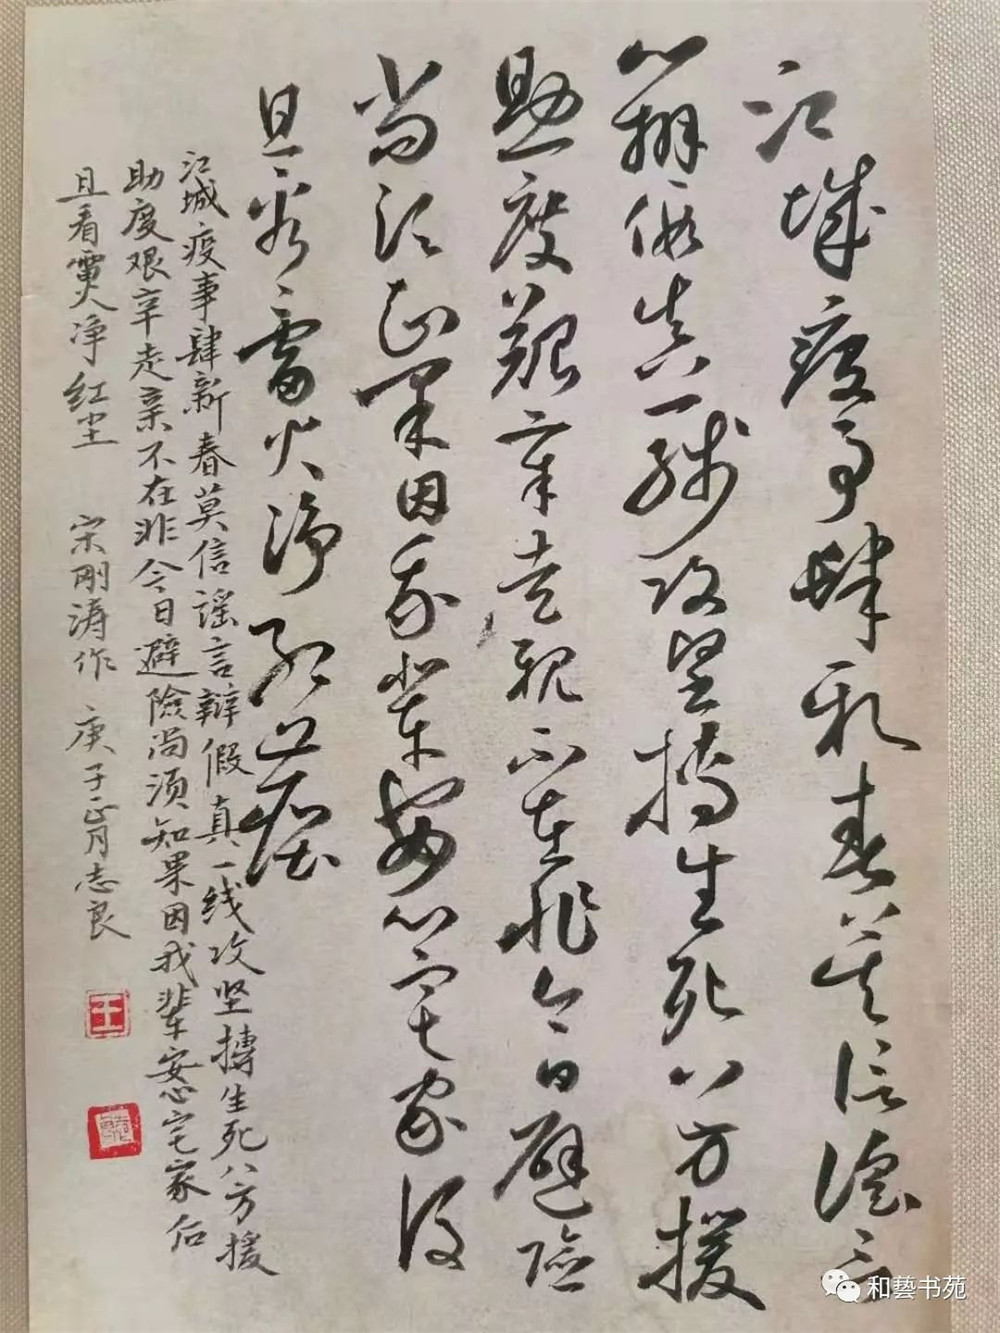 江城疫事肆新春莫信谣言
辨假真一线攻坚搏生死八方援
助度艰辛走亲不在非今日避险
尚须知果因我辈安心宅家后
且看雷火净红尘
江城疫事肆新春莫信谣言辩假真一线攻坚搏生死八方援
助度艰辛走亲不在非今日避险尚须知果因我辈安心宅家后
且看雷火净红尘 宋刚涛作 庚子正月志良
王
和藝书苑